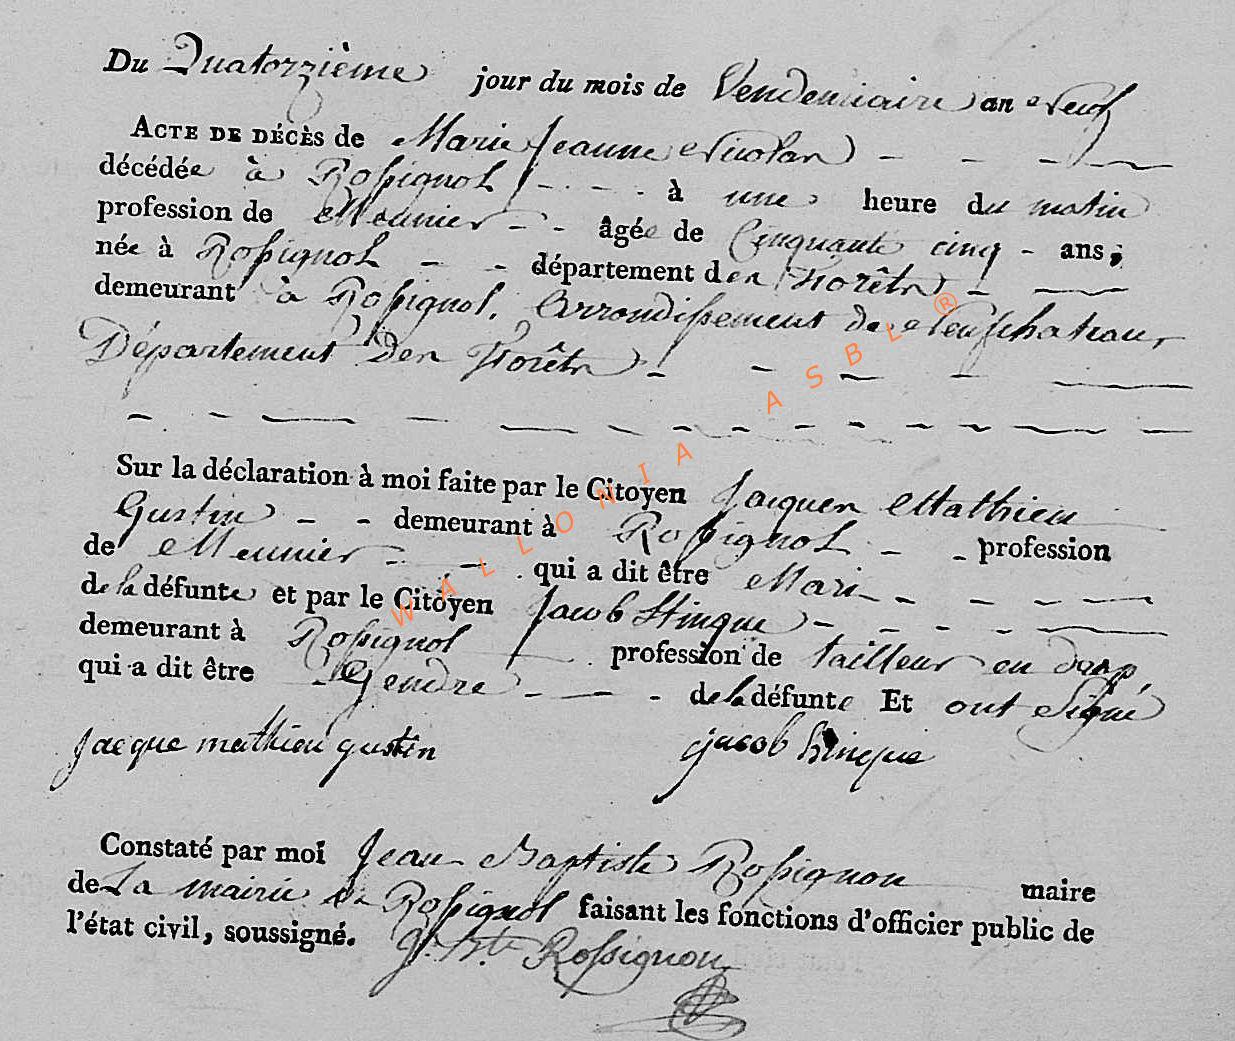 Du Quatorzième jour du mois de Vendemiaire an Neuf
ACTE DE DÉCÈS de Marie Jeanne Nicolas
décédée à Rossignol à une heure du matin
profession de Meunier âgée de Cinquante cinq ans;
née à Rossignol département des Forêts
demeurant à Rossignol. Arrondissement de Neufchateau,
Département des Forêts
Sur la déclaration à moi faite par le Citoyen Jacques Mathieu
Gustin demeurant à Rossignol profession
de Meunier qui a dit être Mari
de la défunte et par le Citoyen Jacob Hinque
demeurant à Rossignol profession de tailleur en drap,
qui a dit être Gendre de la défunte Et ont Signé
jacque mathieu gustin jacob hinque
Constaté par moi Jean Baptiste Rossignon maire
de La mairie de Rossignol faisant les fonctions d'officier public de
l'état civil, soussigné. J. Bte Rossignon
WALLONIA ASBL ®